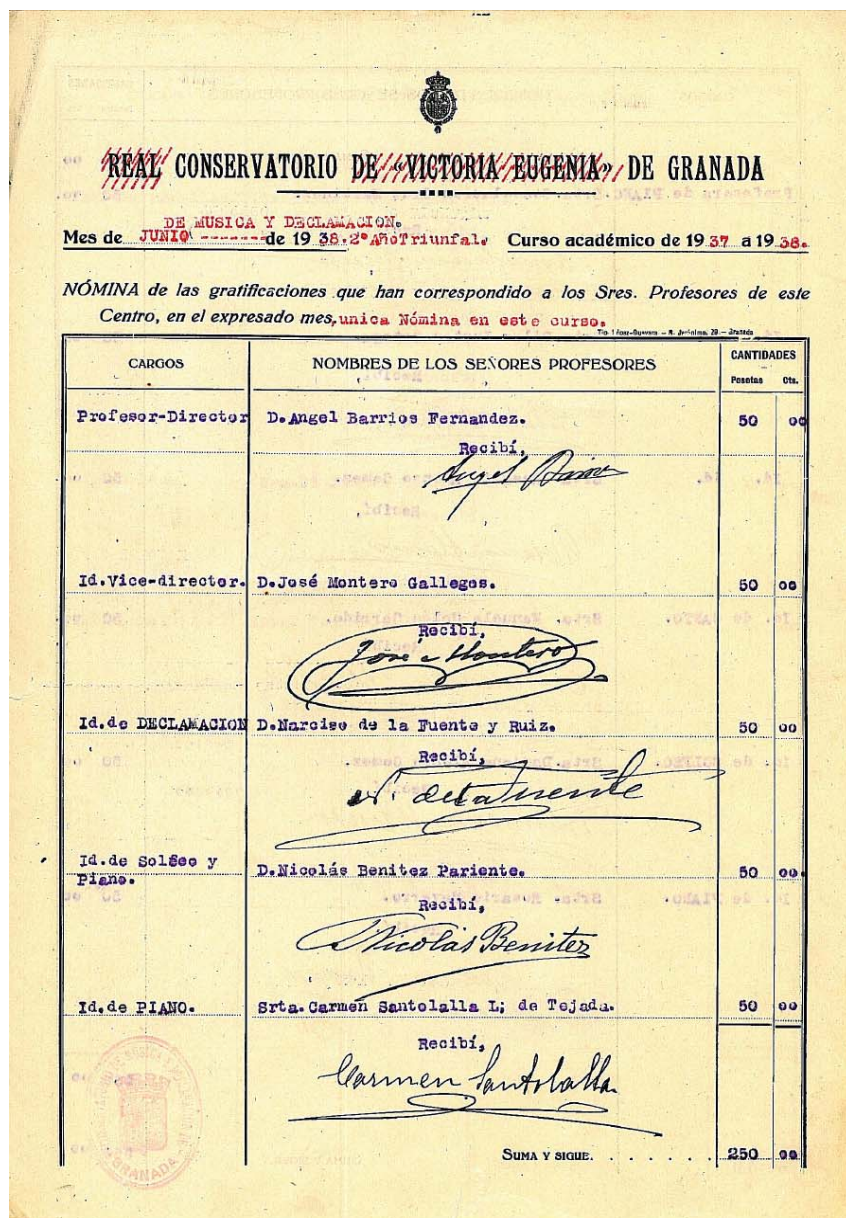 REAL CONSERVATORIO DE «VICTORIA EUGENIA» DE GRANADA
DE MUSICA Y DECLAMACION.
Mes de JUNIO -------de 19 38.2º AñoTriunfal. Curso académico de 19 37 a 19 38.
NÓMINA de las gratificaciones que han correspondido a los Sres. Profesores de este
Centro, en el expresado mes, unica Nómina en este curso.
Tip. López-Guevara – S. Jerónimo, 29 – Granada
CARGOS NOMBRES DE LOS SEÑORES PROFESORES CANTIDADES
Pesetas Cts.
Profesor-Director D.Angel Barrios Fernandez. 50 00
Recibí,
Angel Barrios
Id.Vice-director. D.José Montero Gallegos. 50 00
Recibí,
José Montero
Id.de DECLAMACION D.Narciso de la Fuente y Ruiz. 50 00
Recibí,
N. de la Fuente
Id.de Solfeo y
Piano. D.Nicolás Benitez Pariente. 50 00.
Recibí,
Nicolás Benitez
Id.de PIANO. Srta.Carmen Santolalla L; de Tejada. 50 00
Recibí,
Carmen Santolalla
GRANADA
SUMA Y SIGUE. . . . . . . 250 00